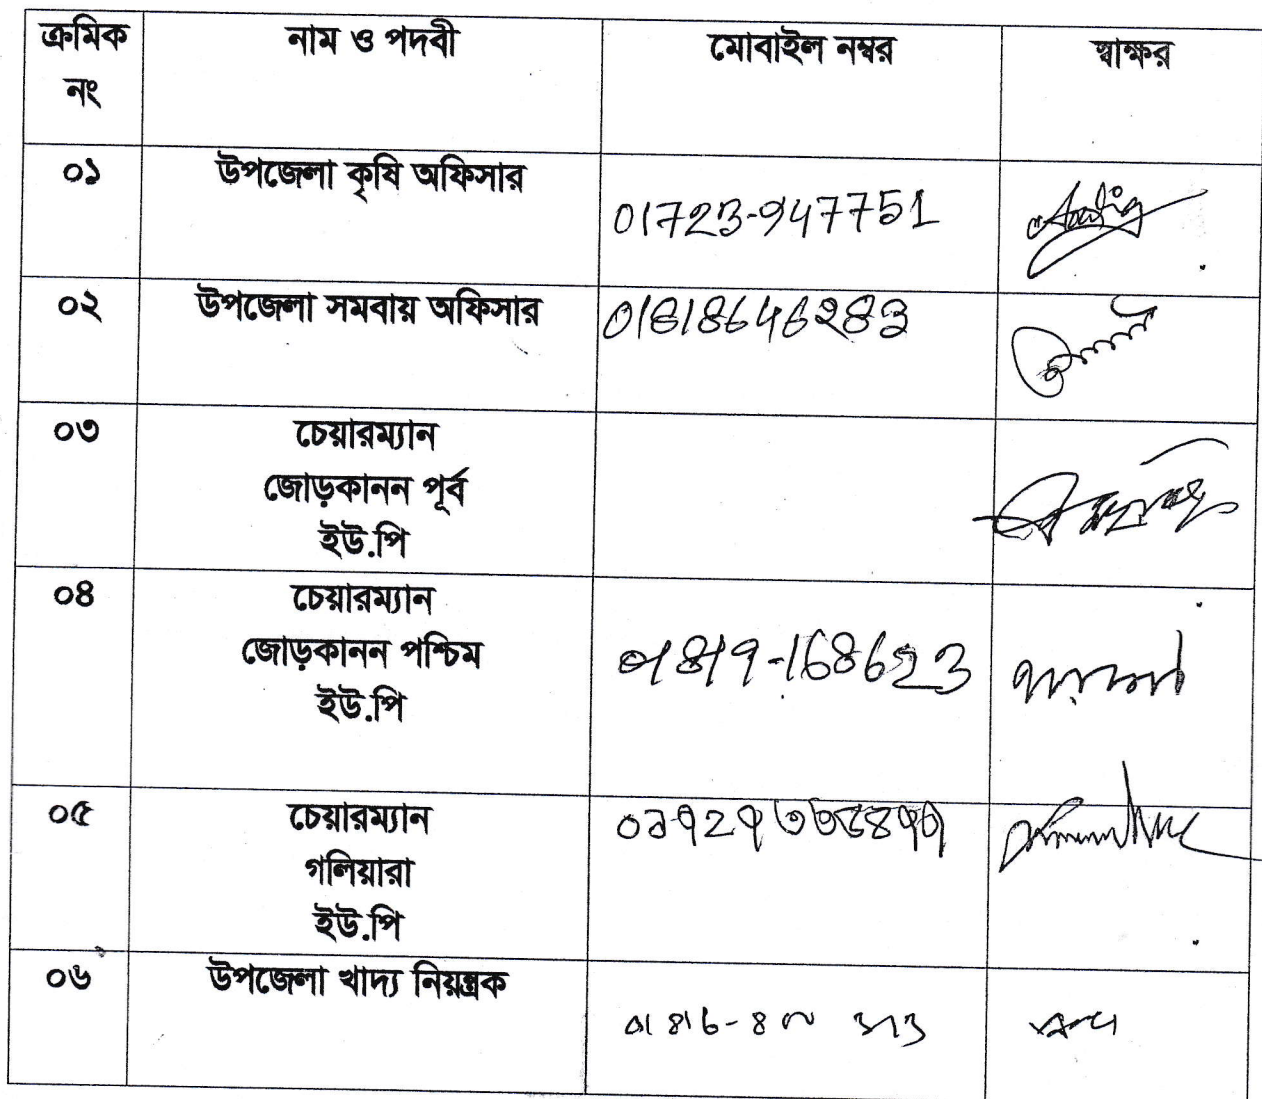 ক্রমিক নাম ও পদবী মোবাইল নম্বর স্বাক্ষর
নং
০১ উপজেলা কৃষি অফিসার 01723-947751
০২ উপজেলা সমবায় অফিসার 01818646283
০৩ চেয়ারম্যান
জোড়কানন পূর্ব
ইউ.পি
০৪ চেয়ারম্যান
জোড়কানন পশ্চিম 01819-168623
ইউ.পি
০৫ চেয়ারম্যান
গলিয়ারা
ইউ.পি
০৬ উপজেলা খাদ্য নিয়ন্ত্রক